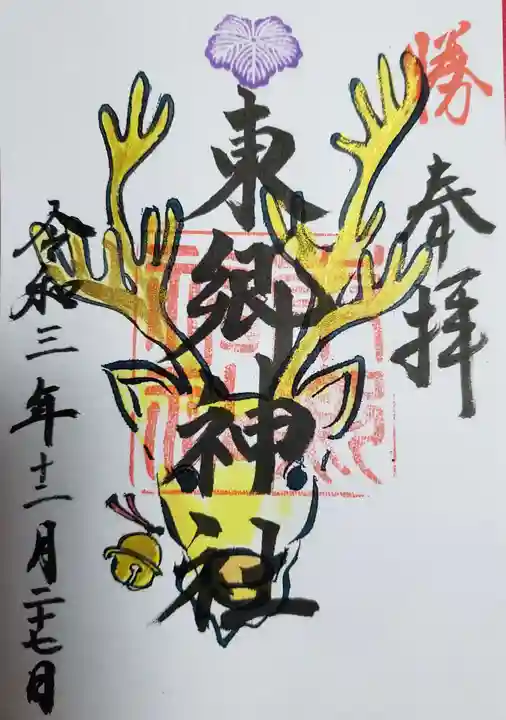 勝
奉拝
東郷神社
令和三年十二月二十七日